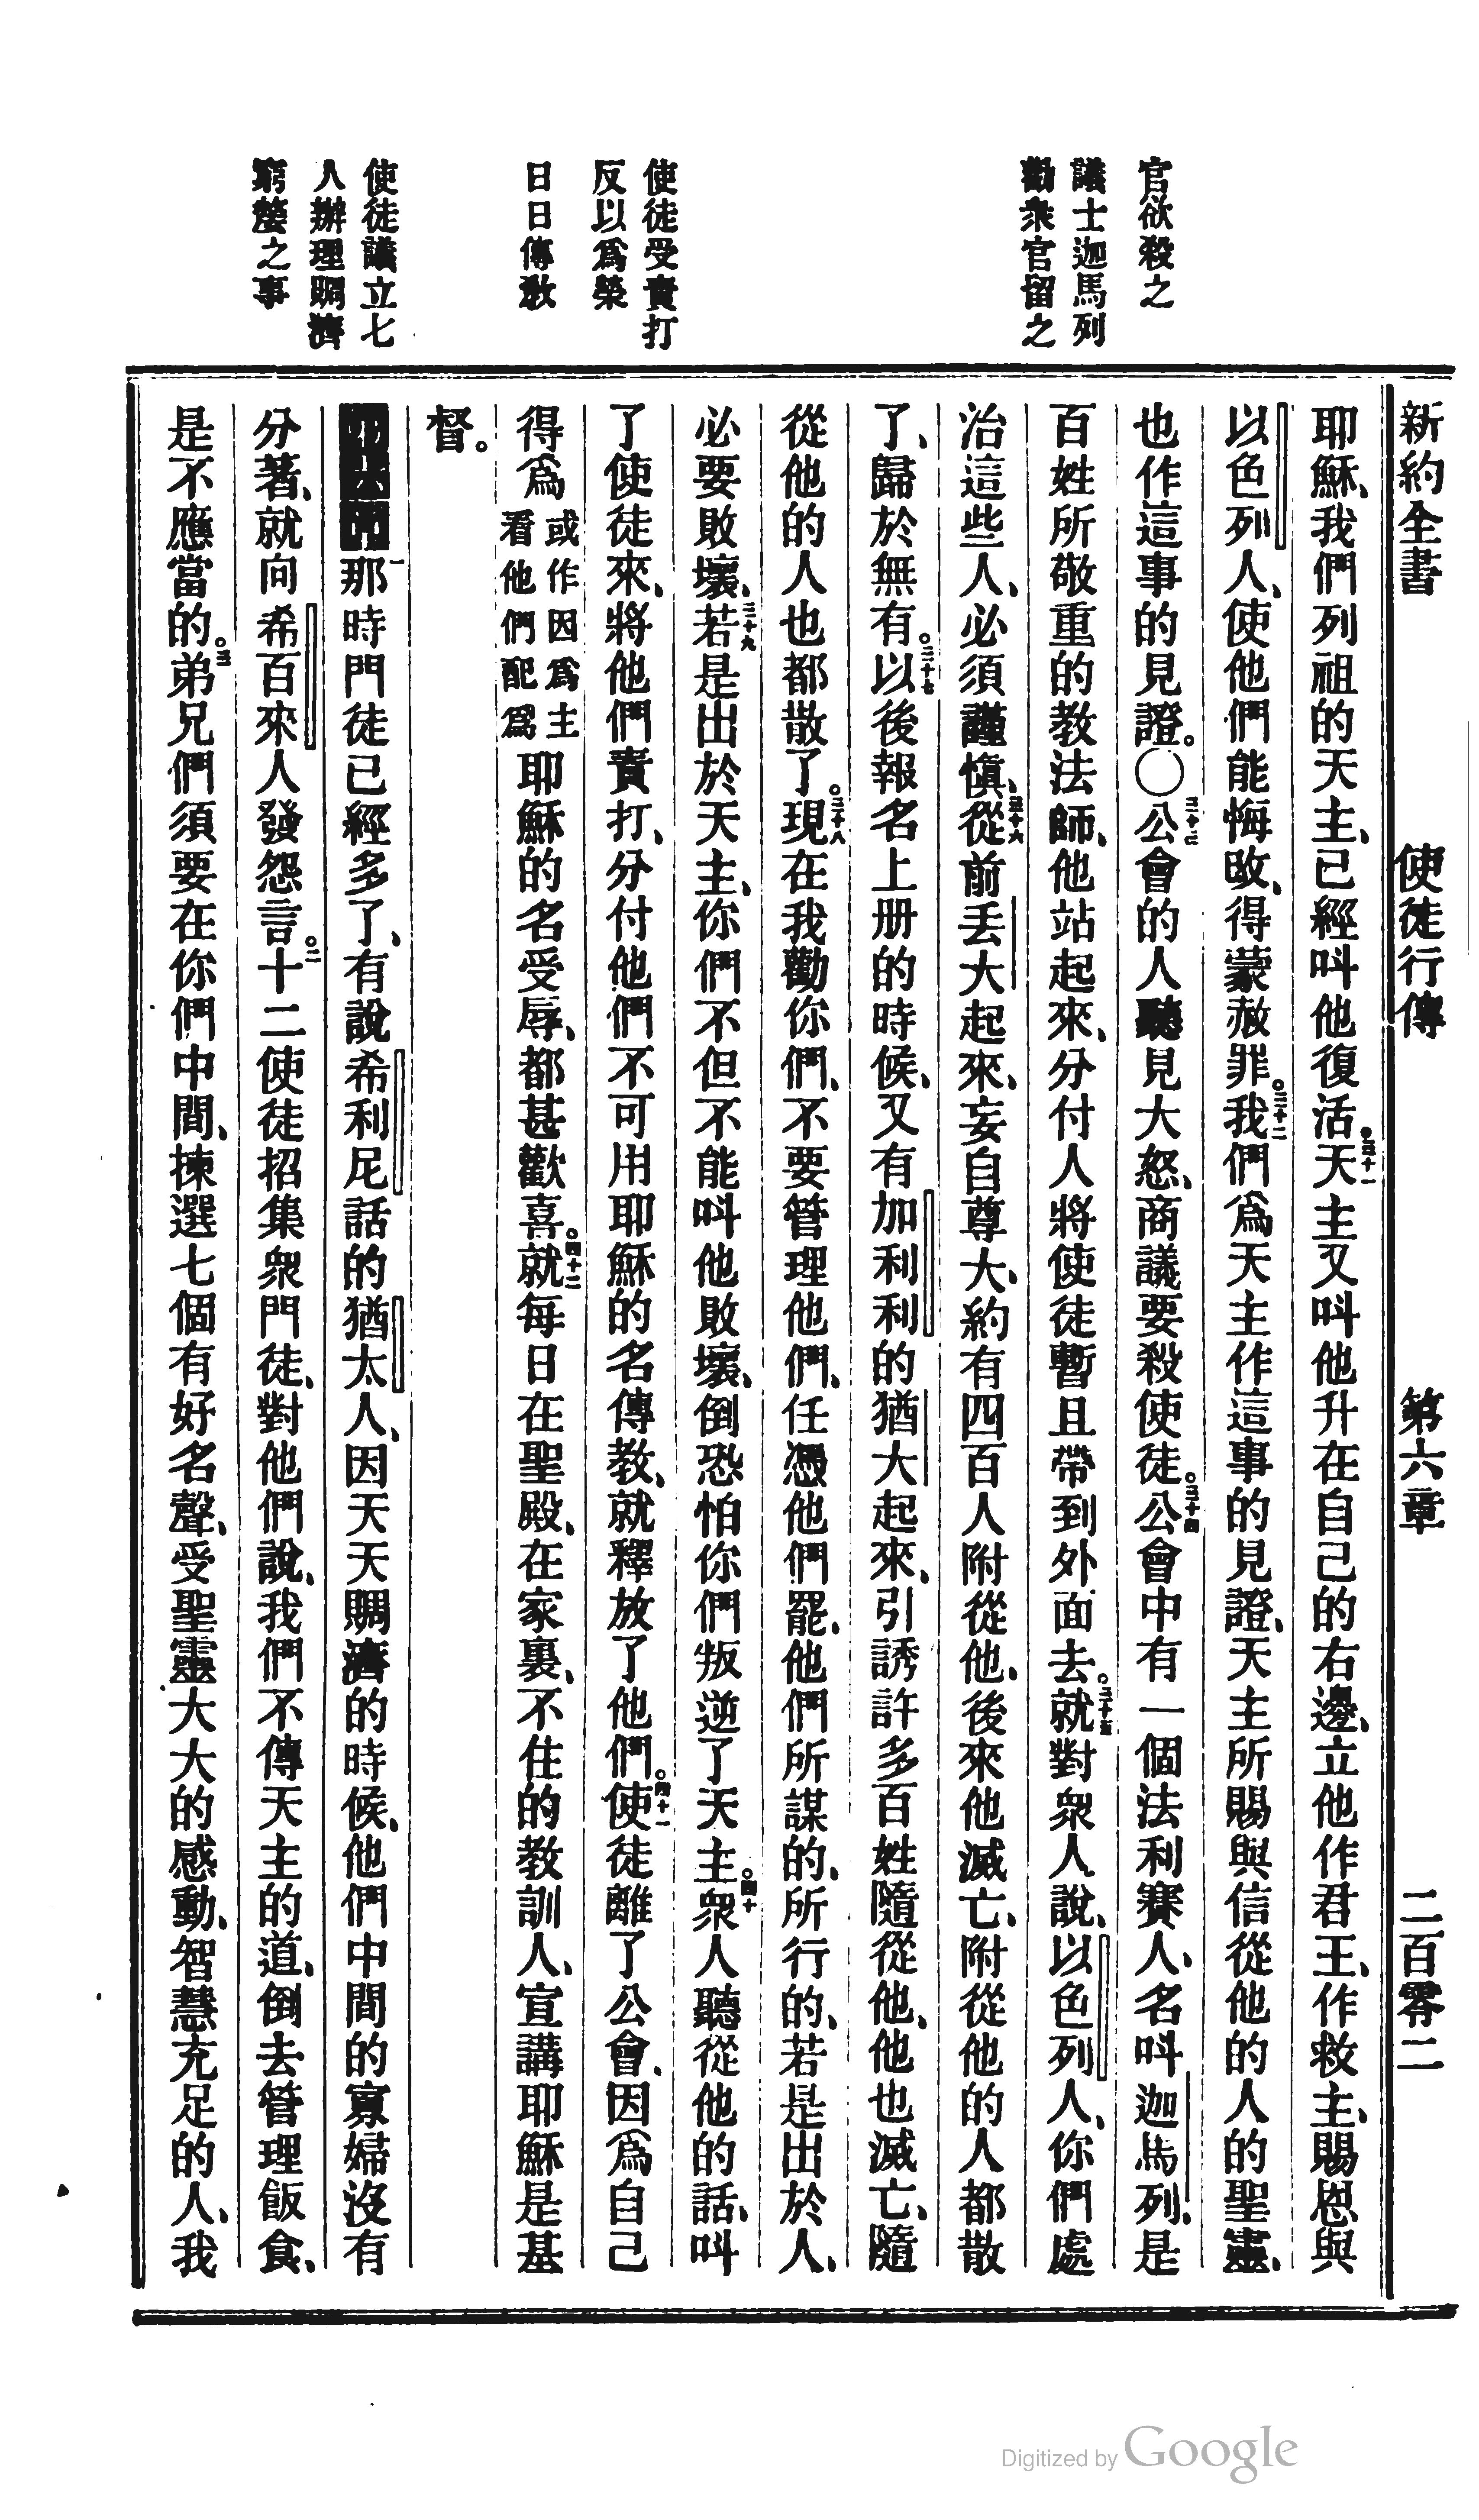 新約全書 使徒行傳 第六章 二百零二
官欲殺之
議士迦馬列
勸衆官留之
使徒受責打
反以爲榮
日日傳教
使徒議立七
人辦理賙濟
窮嫠之事
耶穌、我們列祖的天主、已經叫他復活。三十一天主又叫他升在自己的右邊、立他作君王、作救主、賜恩與
以色列人、使他們能悔改、得蒙赦罪。三十二我們爲天主作這事的見證、天主所賜與信從他的人的聖靈、
也作這事的見證。〇三十三公會的人聽見大怒、商議要殺使徒。三十四公會中有一個法利賽人、名叫迦馬列、是
百姓所敬重的教法師、他站起來、分付人將使徒暫且帶到外面去。三十五就對衆人說、以色列人、你們處
治這些人、必須謹愼、三十六從前丢大起來、妄自尊大、約有四百人附從他、後來他滅亡、附從他的人都散
了、歸於無有。三十七以後報名上册的時候、又有加利利的猶大起來、引誘許多百姓隨從他、他也滅亡、隨
從他的人也都散了。三十八現在我勸你們、不要管理他們、任憑他們罷、他們所謀的、所行的、若是出於人、
必要敗壞、三十九若是出於天主、你們不但不能叫他敗壞、倒恐怕你們叛逆了天主。四十衆人聽從他的話、叫
了使徒來、將他們責打、分付他們不可用耶穌的名傳教、就釋放了他們。四十一使徒離了公會、因爲自己
得爲或作因爲主看他們配爲耶穌的名受辱、都甚歡喜。四十二就每日在聖殿、在家裏、不住的教訓人、宣講耶穌是基
督。
一那時門徒已經多了、有說希利尼話的猶太人、因天天賙濟的時候、他們中間的寡婦沒有
分著、就向希百來人發怨言。二十二使徒招集衆門徒、對他們說、我們不傳天主的道、倒去管理飯食、
是不應當的。三弟兄們須要在你們中間、揀選七個有好名聲、受聖靈大大的感動、智慧充足的人、我
Digitized by Google